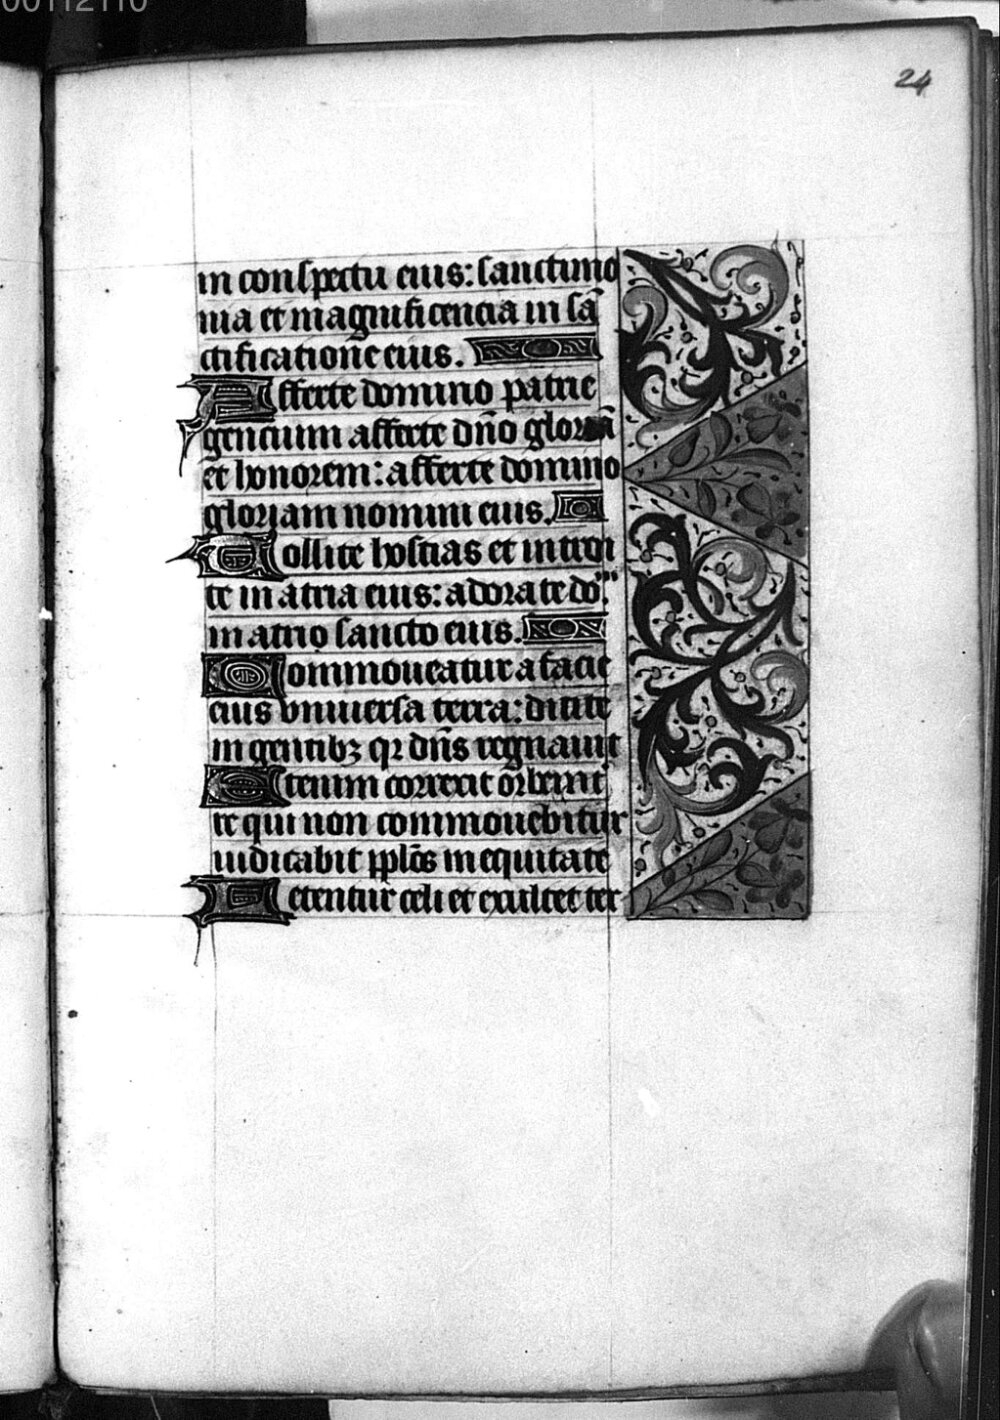 00112110
24
in conspectu eius: sanctimo
nia et magnificencia in sā
ctificatione eius.
Afferte domino patrie
gencium afferte dn̄o gloriā
et honorem: afferte domino
gloriam nomini eius.
Tollite hostias et introi
te in atria eius: adorate do"
in atrio sancto eius.
Commoueatur a facie
eius vniuersa terra: dicite
in gentibꝫ qꝛ dn̄s regnauit
Etenim correxit orbem t
re qui non commouebitur
iudicabit pplōs in equitate
Letentur celi et exultet ter